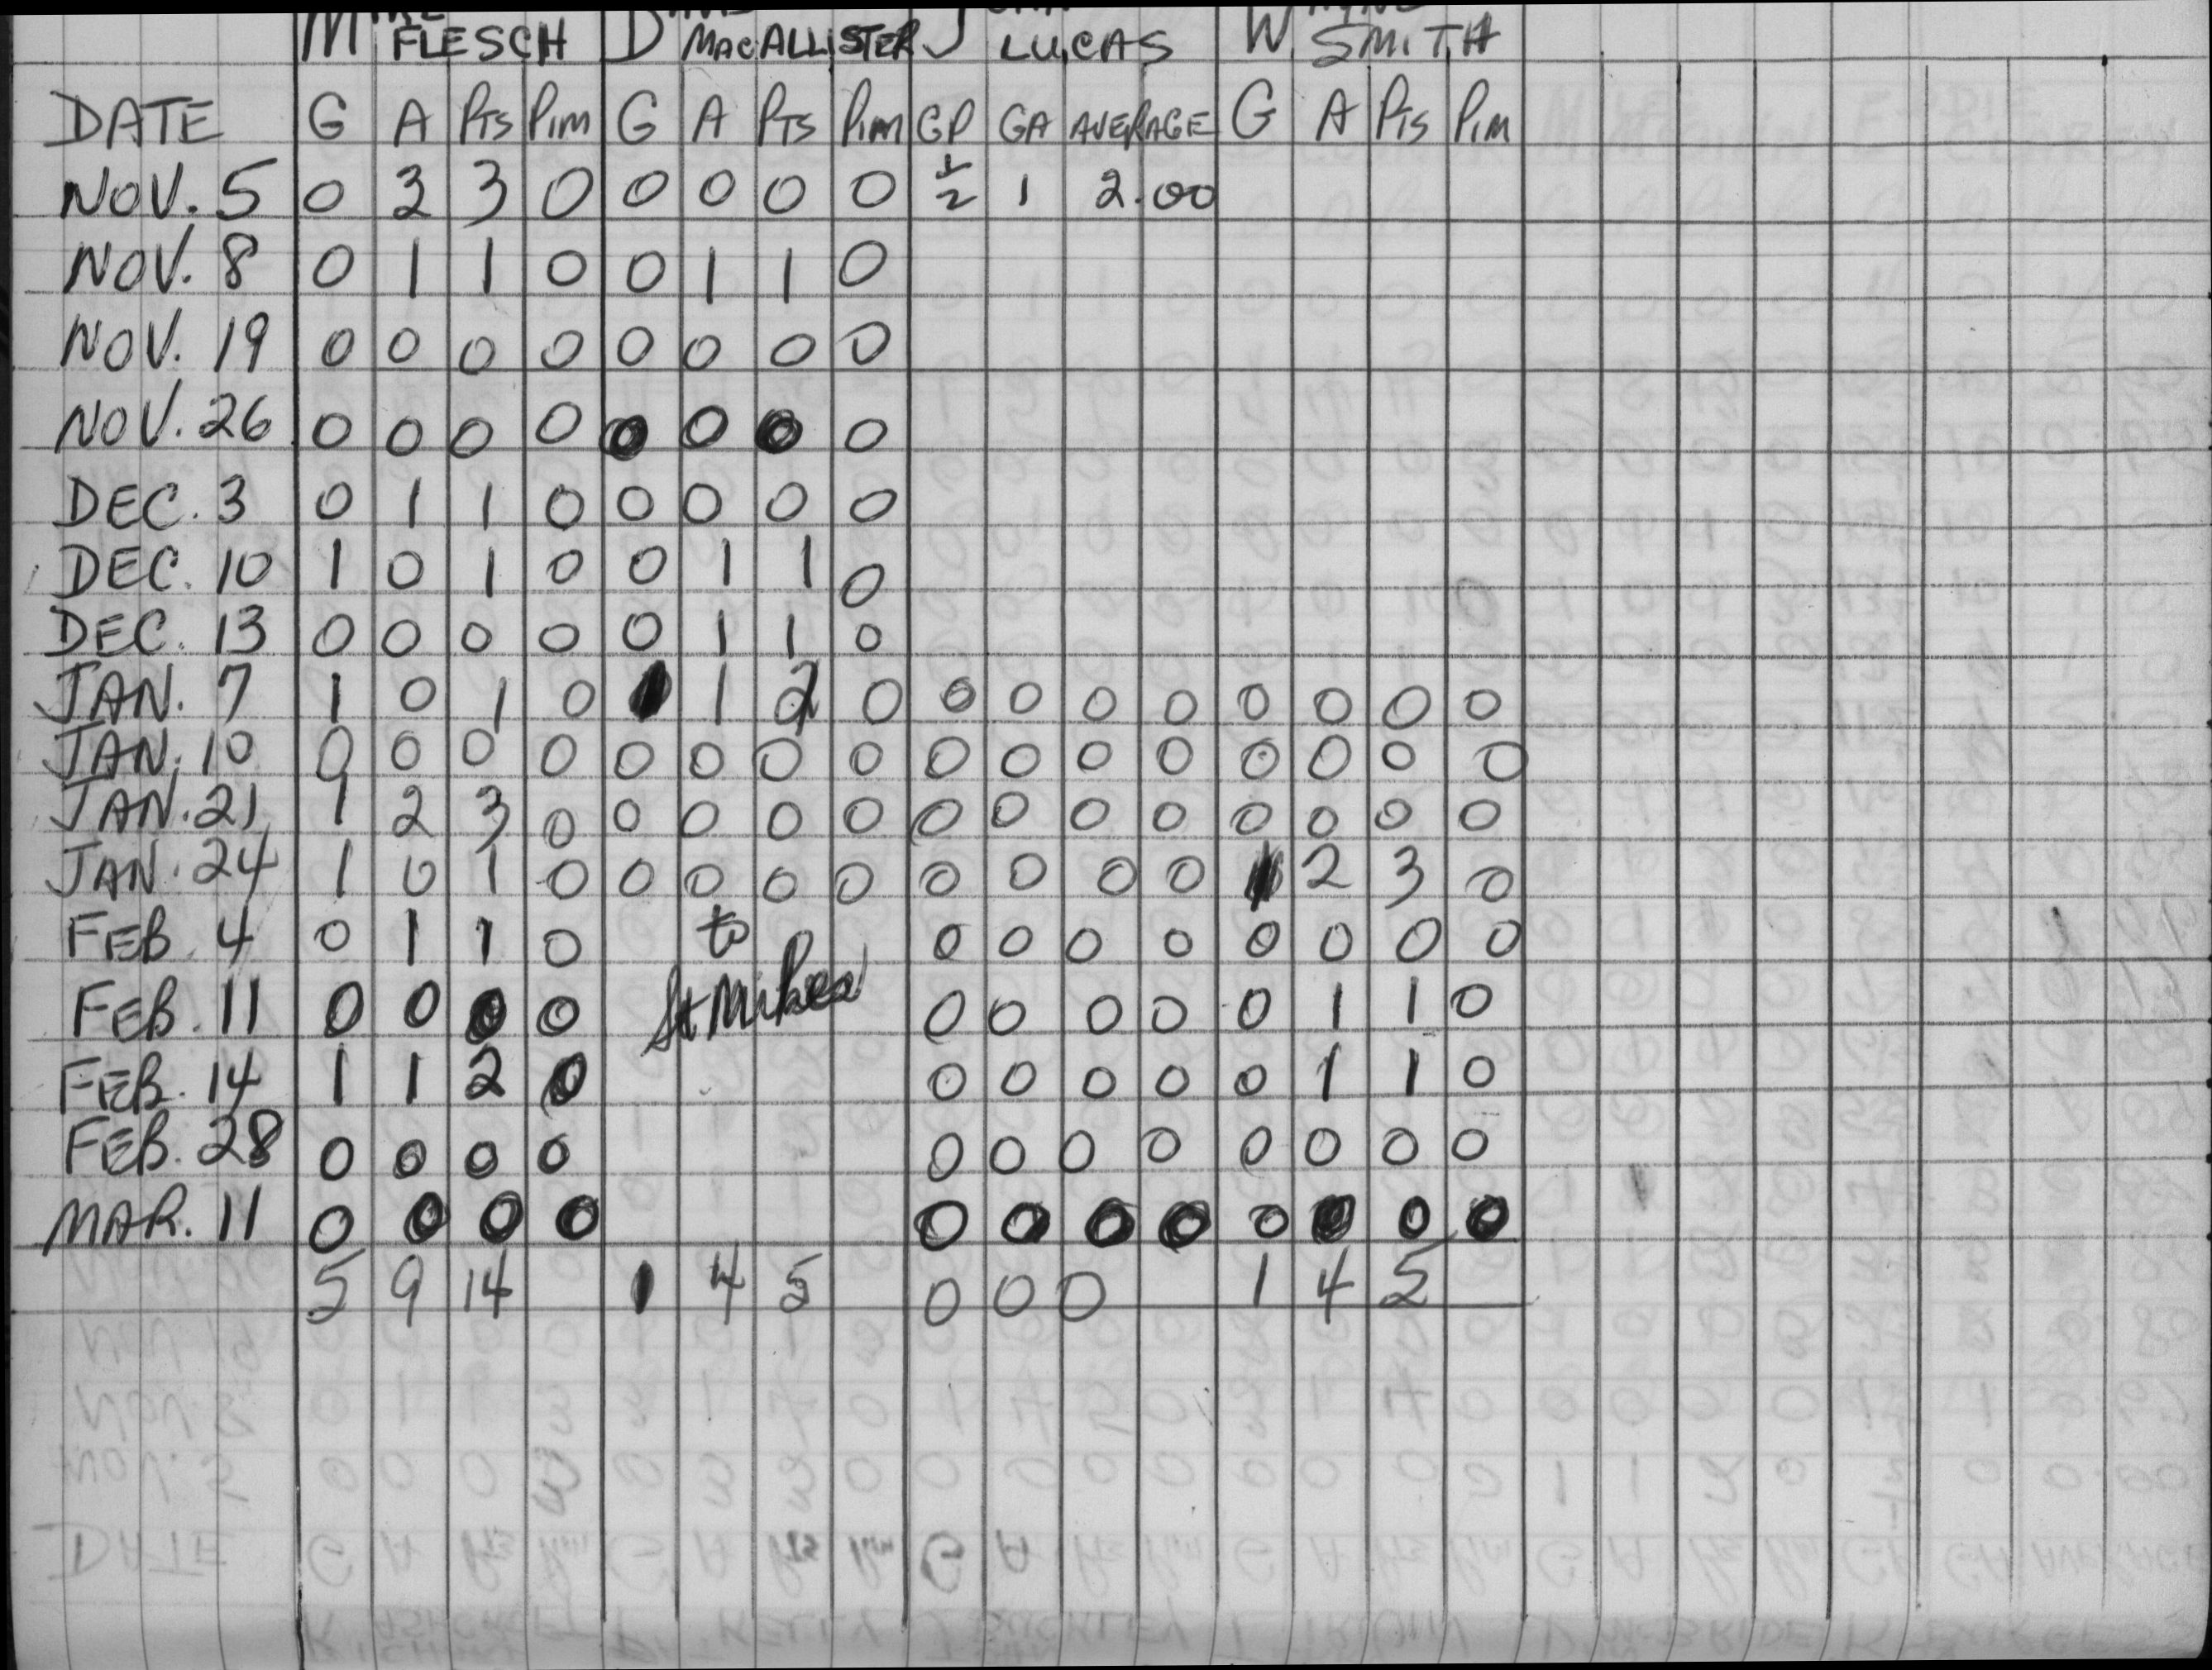 MIKE DAVID JOHN WAYNE
FLESCH MACALLISTER LUCAS SMITH
DATE G A PTS PIM G A PTS PIM GP GA AVERAGE G A PTS PIM
NOV. 5 0 3 3 0 0 0 0 0 1/2 1 2.00
NOV. 8 0 1 1 0 0 1 1 0
NOV. 19 0 0 0 0 0 0 0 0
NOV. 26 0 0 0 0 0 0 0 0
DEC. 3 0 1 1 0 0 0 0 0
DEC. 10 1 0 1 0 0 1 1 0
DEC. 13 0 0 0 0 0 1 1 0
JAN. 7 1 0 1 0 1 1 2 0 0 0 0 0 0 0 0 0
JAN. 10 0 0 0 0 0 0 0 0 0 0 0 0 0 0 0 0
JAN. 21 1 2 3 0 0 0 0 0 0 0 0 0 0 0 0 0
JAN. 24 1 0 1 0 0 0 0 0 0 0 0 0 1 2 3 0
FEB. 4 0 1 1 0 to 0 0 0 0 0 0 0 0
FEB. 11 0 0 0 0 St Mikes 0 0 0 0 0 1 1 0
FEB. 14 1 1 2 0 0 0 0 0 0 1 1 0
FEB. 28 0 0 0 0 0 0 0 0 0 0 0 0
MAR. 11 0 0 0 0 0 0 0 0 0 0 0 0
5 9 14 1 4 5 0 0 0 1 4 5